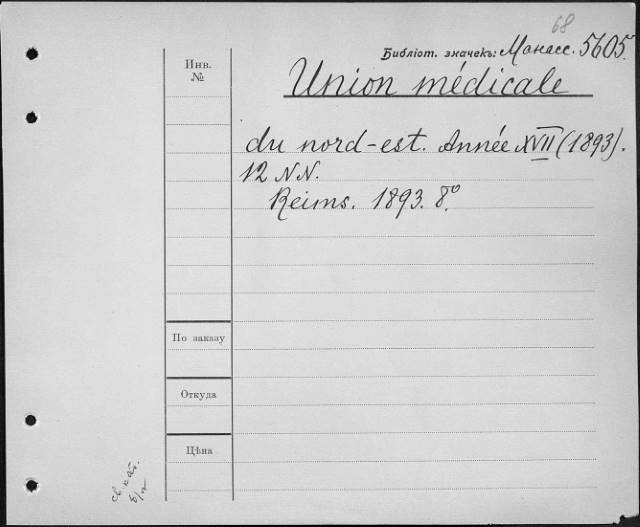 68
Библіот. значекъ: Манасс. 5605.
Инв.
№
Union médicale
du nord-est. Année XVII (1893).
12 NN.
Reims. 1893. 8º.
По заказу
Откуда
Цѣна